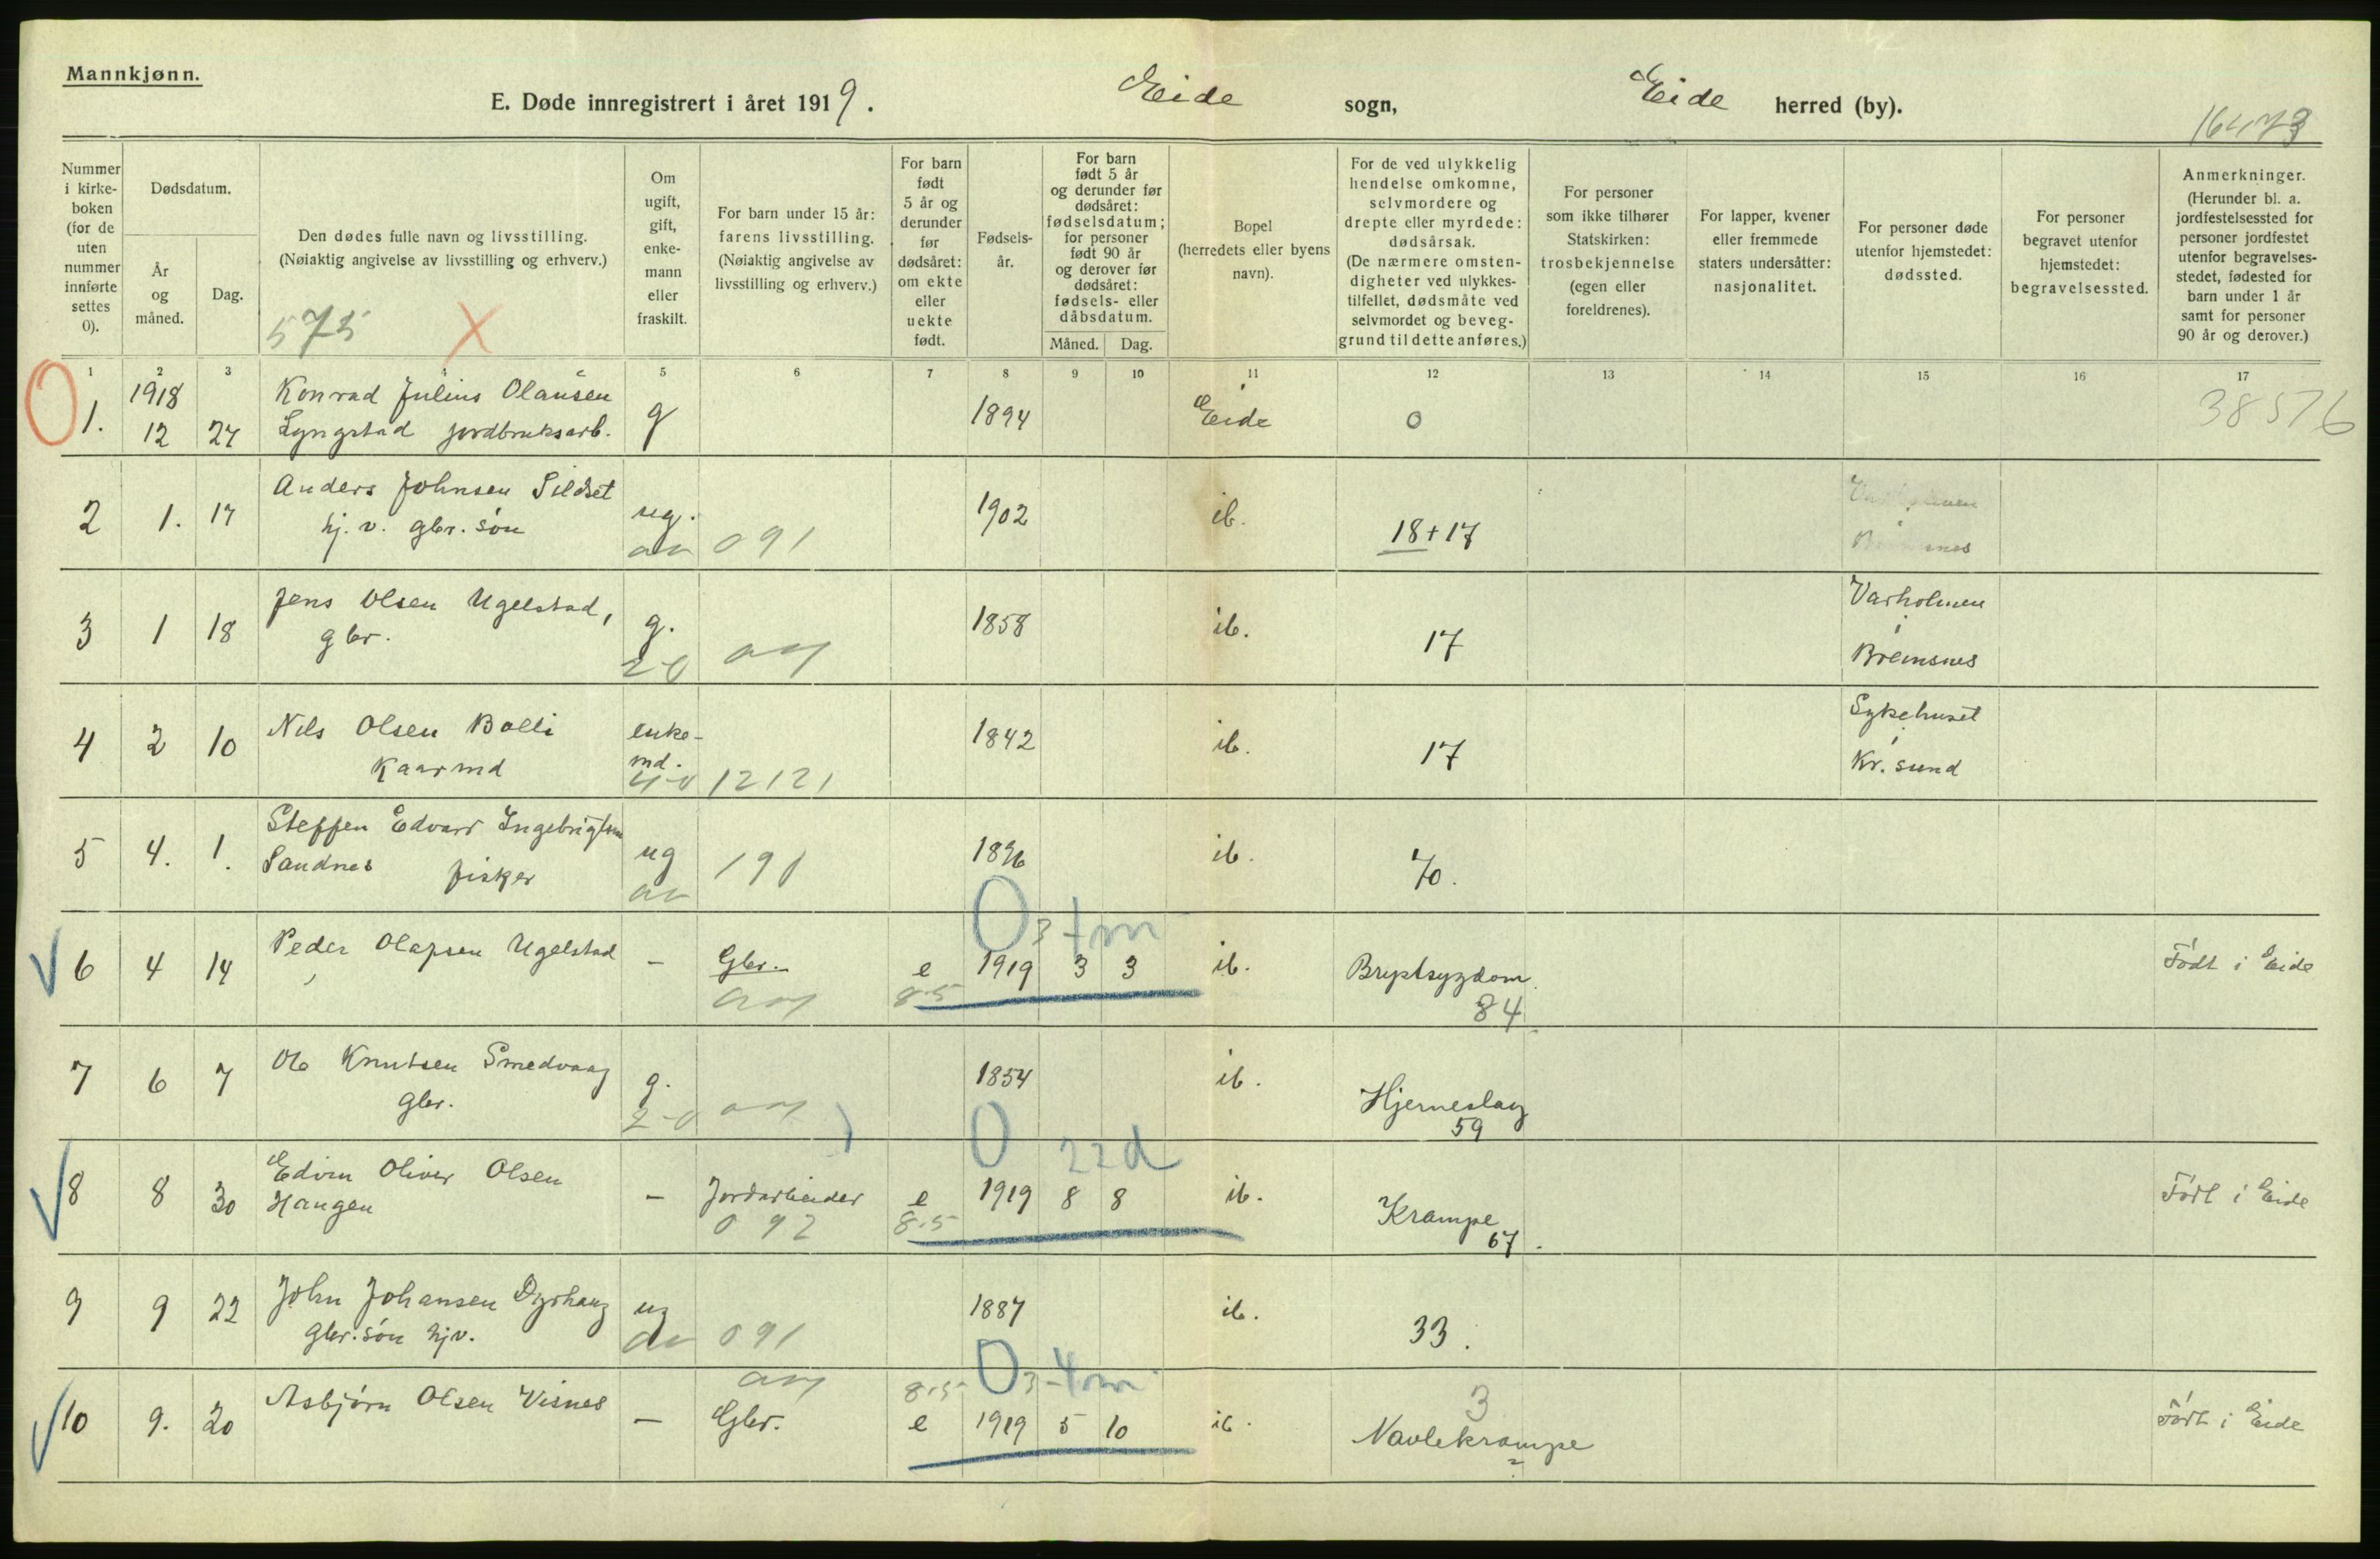 Mannkjønn.
E. Døde innregistrert i året 1919. Eide sogn, Eide herred (by).
16473
Nummer i kirke-boken (for de uten nummer innførte settes 0).
Dødsdatum.
År og måned.
Dag.
Den dødes fulle navn og livsstilling.
(Nøiaktig angivelse av livsstilling og erhverv.)
575 X
Om ugift, gift, enke-mann eller fraskilt.
For barn under 15 år: farens livsstilling. (Nøiaktig angivelse av livsstilling og erhverv.)
For barn født 5 år og derunder før dødsåret: om ekte eller uekte født.
Fødsels-år.
For barn født 5 år og derunder før dødsåret: fødselsdatum; for personer født 90 år og derover før dødsåret: fødsels- eller dåbsdatum.
Måned. Dag.
Bopel (herredets eller byens navn).
For de ved ulykkelig hendelse omkomne, selvmordere og drepte eller myrdede: dødsårsak. (De nærmere omsten-digheter ved ulykkes-tilfellet, dødsmåte ved selvmordet og beveg-grund til dette anføres.)
For personer som ikke tilhører Statskirken: trosbekjennelse (egen eller foreldrenes).
For lapper, kvener eller fremmede staters undersåtter: nasjonalitet.
For personer døde utenfor hjemstedet: dødssted.
For personer begravet utenfor hjemstedet: begravelsessted.
Anmerkninger. (Herunder bl. a. jordfestelsessted for personer jordfestet utenfor begravelses-stedet, fødested for barn under 1 år samt for personer 90 år og derover.)
1 2 3 4 5 6 7 8 9 10 11 12 13 14 15 16 17
1918
1. 12 27 Konrad Julius Olausen g 1894 Eide 0 38576
Lyngstad jordbruksarb.
2 1. 17 Anders Johnsen Sildset ug. 1902 ib. 18+17
hj. v. gbr. søn 091
3 1 18 Jens Olsen Ugelstad, g. 1858 ib. 17 Varholmen
gbr. 2-0 Bremsnes
4 2 10 Nils Olsen Bolli enke-md. 1842 ib. 17 Sykehuset
Kaarmd 4-0 12121 Kr. sund
5 4. 1. Steffen Edvard Ingebrigtsen ug 1896 ib. 70.
Sandnes fisker 191
O 3 - 1 m
6 4 14 Peder Olafsen Ugelstad - Gbr. e 1919 3 3 ib. Brystsygdom Født i Eide
8.5 84
7 6 7 Ole Knutsen Smedvaag g. 1854 ib. Hjerneslag
gbr. 2-0 59
O 22 d
8 8 30 Edvin Oliver Olsen - Jordarbeider e 1919 8 8 ib. Krampe Født i Eide
Haugen 092 8.5 67.
9 9 22 John Johansen Dyrhaug ug 1887 ib. 33.
gbr. søn hjv. 091
8.5 O 3-4 m
10 9. 20 Asbjørn Olsen Visnes - Gbr. e 1919 5 10 ib. 3 Født i Eide
Navlekrampe